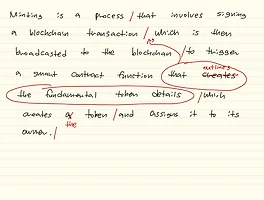 Minting is a process / that involves signing
a blockchain transaction / which is then
broadcasted to the blockchain / to trigger
outlines
a smart contract function that creates
the fundamental token details / which
creates a token / and assigns it to its
the
owner. /